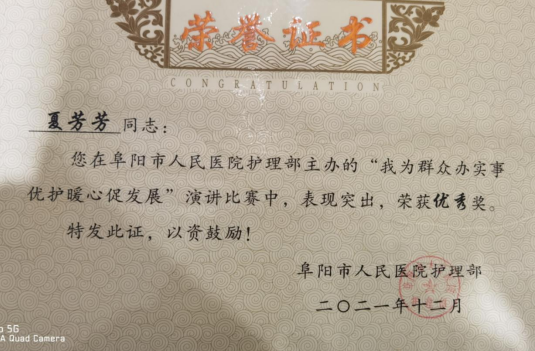 荣誉证书
CONGRATULATION
夏芳芳 同志：
您在阜阳市人民医院护理部主办的“我为群众办实事
优护暖心促发展”演讲比赛中，表现突出，荣获优秀奖。
特发此证，以资鼓励！
阜阳市人民医院护理部
二〇二一年十二月
5G
A Quad Camera